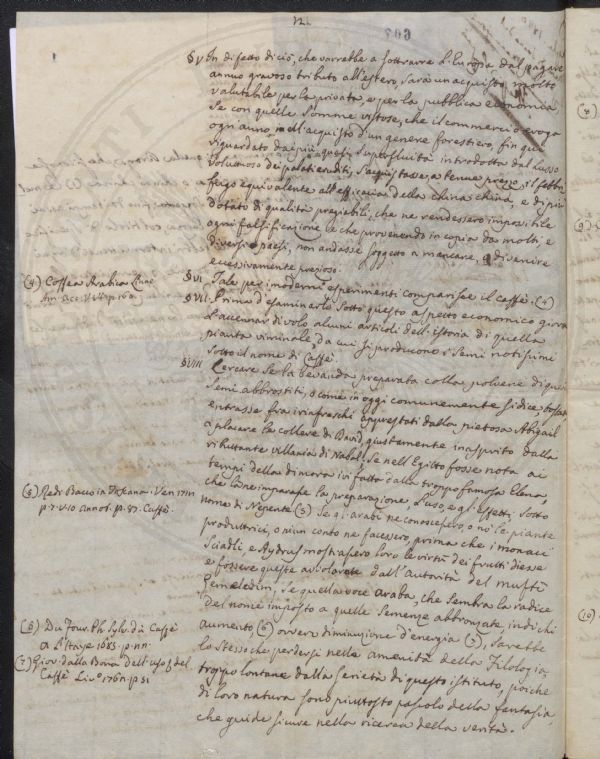 12.
607
§V In difetto di ciò, che varrebbe a sottrarre l'Europa dal pagare
annuo gravoso tributo all'estero, sarà un acquisto molto
valutabile per la privata, e per la pubblica economica
se con quelle somme vistose, che il commercio eroga
ogni anno, nell'acquisto d'un genere forestiero, fin qui
riguardato da più quasi superfluità introdotta dal lusso
voluttuoso dei palati eruditi, s'acquistasse a tenue prezzo il febbri
fugo equivalente all'efficacia della china china, e di più
dotato di qualità pregiabili, che ne rendessero impossibile
ogni falsificazione e che provenendo in copia da molti e
diversi paesi, non andasse soggetto a mancare, o divenire
eccessivamente prezioso.
§VI Tale per i moderni esperimenti comparisce il caffè. (4)
(4) Coffea Arabica Linn.
§VII Prima d'esaminarlo sotto questo aspetto economico giova
l'accennar di volo alcuni articoli dell'istoria di quella
pianta viminale, da cui si producono i semi notissimi
sotto il nome di Caffè.
§VIII Cercare se la bevanda preparata colla polvere di quei
semi abbrostiti, o come in oggi comunemente si dice, tostati
entrasse fra i rinfreschi apprestati dalla pietosa Abigail
a placare la collera di David, giustamente inasprito dalla
ributtante villania di Nabal. Se nell'Egitto fosse nota ai
tempi della dimora ivi fatta dalla troppo famosa Elena,
che là ne imparasse la preparazione, l'uso, e gli effetti, sotto
nome di Nepente (5) Se gl'arabi ne conoscessero, o nò le piante
(5) Redi Bacco in Toscana. Ven. 1711
p. 7. v. 10 annot. p. 87. Caffè.
produttrici, o niun conto ne facessero, prima che i monaci
Sciadli, e Aydrus mostrassero loro le virtù dei frutti d'esse
e fossero queste avvalorate dall'autorità del muftì
Gemeleddin, se quella voce araba, che sembra la radice
del nome imposto a quelle semenze abbronzate indichi
aumento (6) ovvero diminuzione d'energia (7), sarebbe
(6) Du Four Ph. Sylv. du Caffè
a l'Haye 1685. p.
(7) Giov. dalla Bona dell'uso del
Caffè Liv. 1762. p. 51
lo stesso che perdersi nelle amenità della Filologia
troppo lontane dalla serietà di questo istituto, poichè
di loro natura sono piuttosto pascolo della fantasia,
che guide sicure nella ricerca della verità.
(8)
(9)
(10)